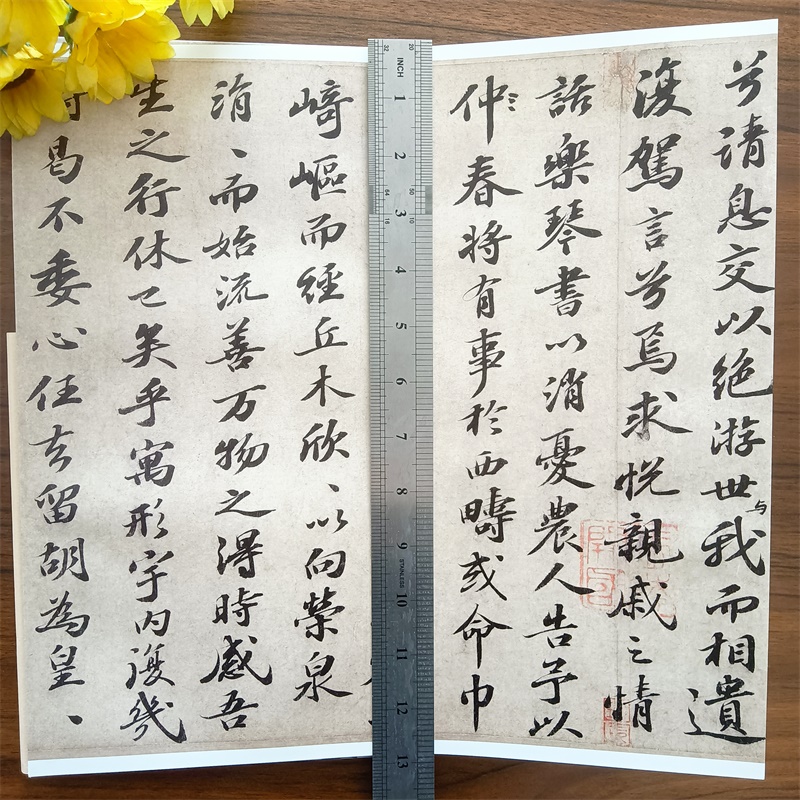 兮請息交以絶游世与我而相遺
復駕言兮焉求悅親戚之情
話樂琴書以消憂農人告予以
仲春將有事於西疇或命巾
崎嶇而經丘木欣、以向榮泉
涓、而始流善万物之得時感吾
生之行休已矣乎寓形宇内復幾
曷不委心任去留胡為皇、
32 20
INCH
1
2
64 50
3
16 10
4
5
6
7
8
9
STAINLESS
10
11
12
13